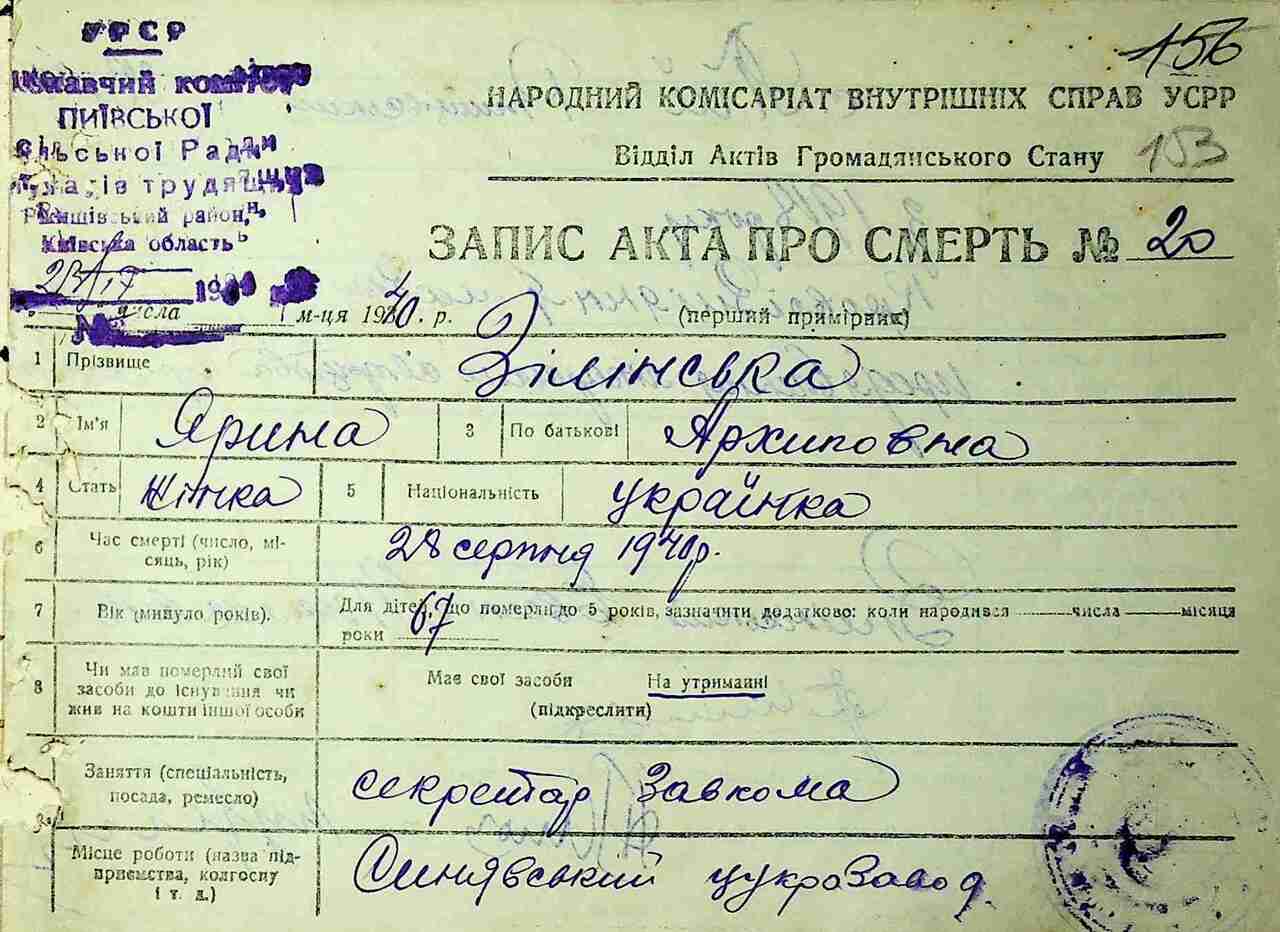 УРСР
156
ПИЇВСЬКОЇ
НАРОДНИЙ КОМІСАРІАТ ВНУТРІШНІХ СПРАВ УСРР
Відділ Актів Громадянського Стану 153
район,
Київська область
ЗАПИС АКТА ПРО СМЕРТЬ № 20
числа м-ця 1940 р. (перший примірник)
1 Прізвище Зілінська
2 Ім'я Ярина 3 По батькові Архиповна
4 Стать жінка 5 Національність українка
6 Час смерті (число, мі-
сяць, рік) 28 серпня 1940 р.
7 Вік (минуло років). Для дітей, що померли до 5 років, зазначити додатково: коли народився числа місяця
роки 67
8 Чи мав померлий свої
засоби до існування чи
жив на кошти іншої особи
Має свої засоби На утриманні
(підкреслити)
Заняття (спеціальність,
посада, ремесло) секретар Завкома
Місце роботи (назва під-
приємства, колгоспу
і т. д.) Синявський цукрозавод